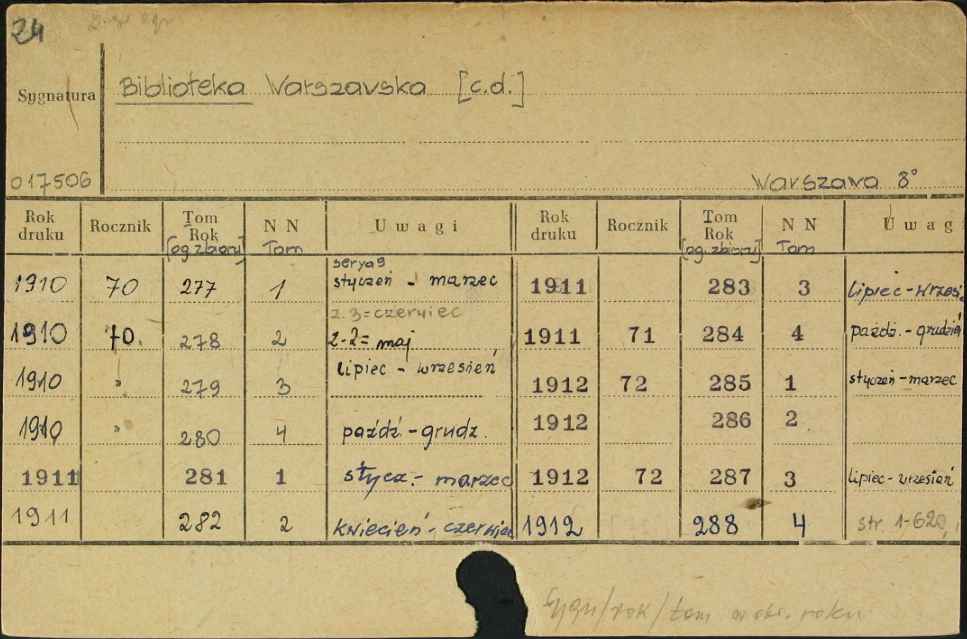 24
Sygnatura
Biblioteka Warszawska [c.d.]
017506
Warszawa 8°
Rok druku Rocznik Tom Rok [og. zbioru] N N Tom Uwagi Rok druku Rocznik Tom Rok [og. zbioru] N N Tom Uwag
serya 9
1910 70 277 1 styczeń - marzec 1911 283 3 lipiec - wrześ.
z. 3 = czerwiec
1910 70. 278 2 z. 2 = maj 1911 71 284 4 paźdź. - grudzień
1910 " 279 3 lipiec - wrzesień 1912 72 285 1 styczeń - marzec
1910 " 280 4 paźdź - grudz. 1912 286 2
1911 281 1 stycz. - marzec 1912 72 287 3 lipiec - wrzesień
1911 282 2 kwiecień - czerwiec 1912 288 4 str. 1-620
Sygn/rok/tom w obr. roku